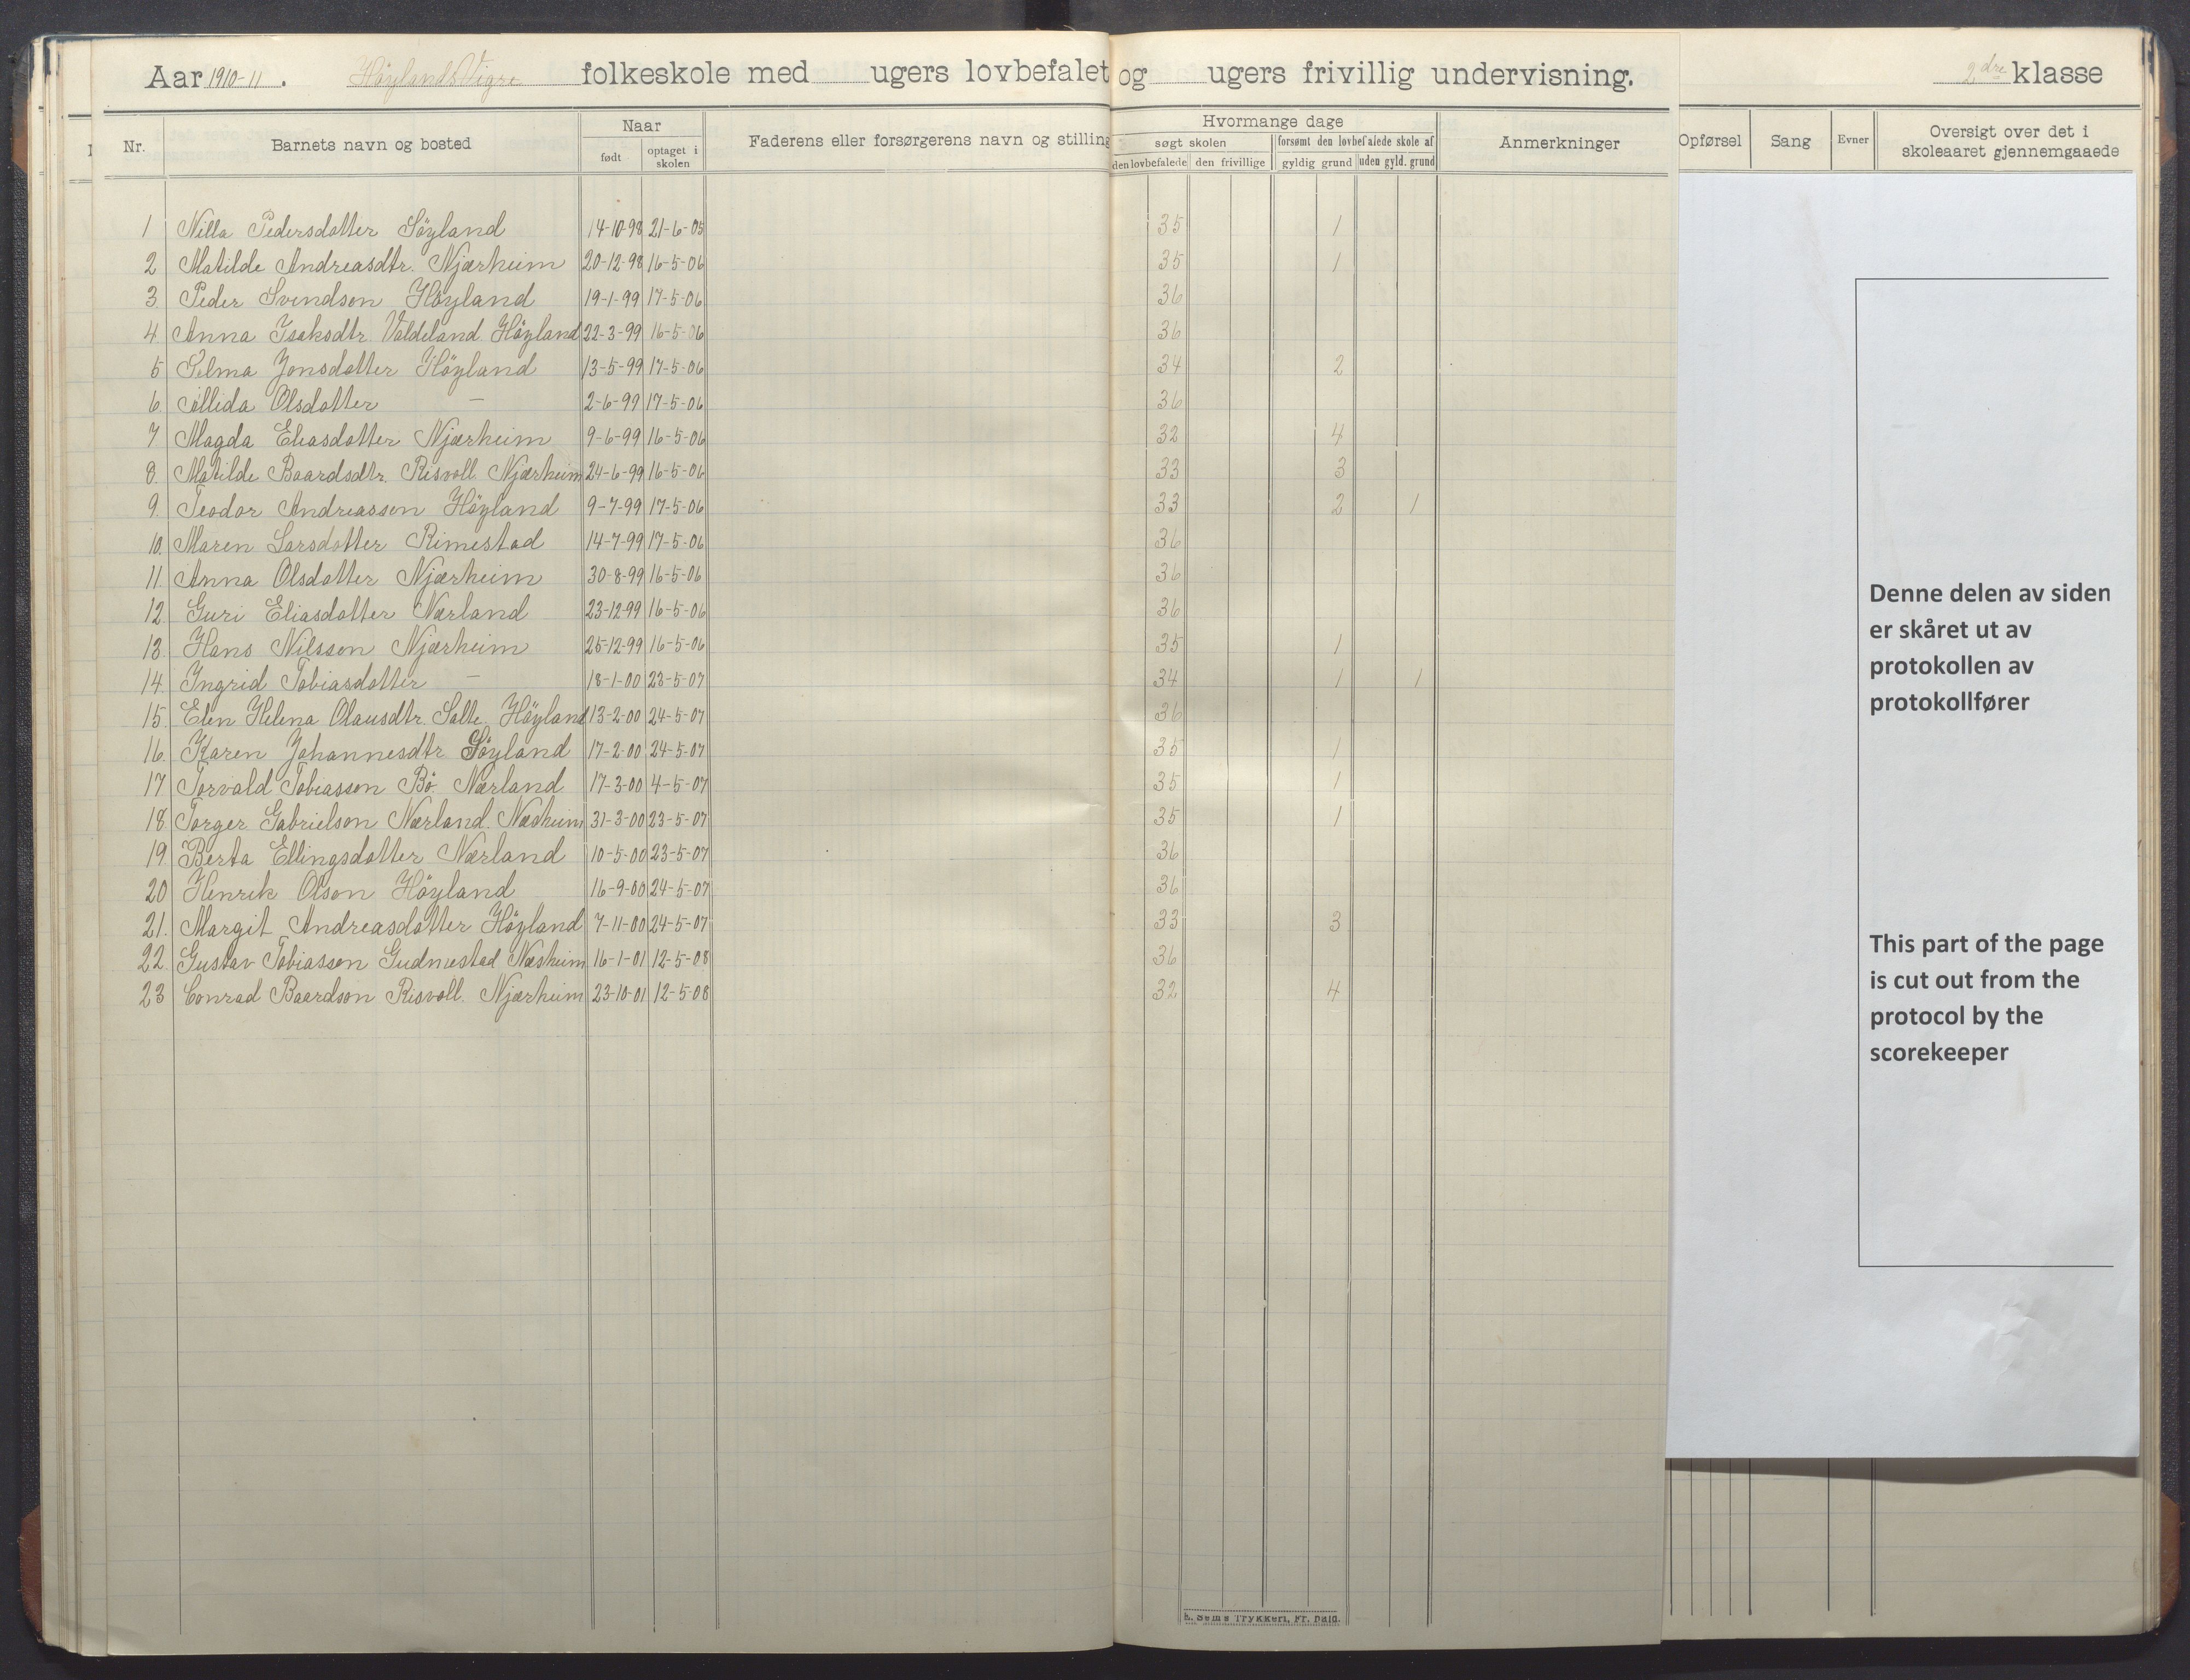 Aar 1910-11. Höylands Vigre folkeskole med ugers lovbefalet og ugers frivillig undervisning. 2dre klasse
Nr. Barnets navn og bosted Naar Faderens eller forsørgerens navn og stilling Hvormange dage Anmerkninger Opførsel Sang Evner Oversigt over det i skoleaaret gjennemgaaede
født optaget i skolen søgt skolen forsømt den lovbefalede skole af
den lovbefalede den frivillige gyldig grund uden gyld. grund
1 Nilla Pedersdatter Söyland 14-10-98 21-6-05 35 1
2 Matilde Andreasdtr. Njærheim 20-12-98 16-5-06 35 1
3. Peder Svendson Höyland 19-1-99 17-5-06 36
4. Anna Isaksdtr. Valdeland Höyland 22-3-99 16-5-06 36
5 Selma Jonsdatter Höyland 13-5-99 17-5-06 34 2
6. Allida Olsdatter — 2-6-99 17-5-06 36
7 Magda Eliasdatter Njærheim 9-6-99 16-5-06 32 4
8. Matilde Baardsdtr. Risvoll Njærheim 24-6-99 16-5-06 33 3
9. Teodor Andreassen Höyland 9-7-99 17-5-06 33 2 1
10. Maren Larsdatter Rimestad 14-7-99 17-5-06 36
11. Anna Olsdatter Njærheim 30-8-99 16-5-06 36
12. Guri Eliasdatter Nærland 23-12-99 16-5-06 36
13. Hans Nilsson Njærheim 25-12-99 16-5-06 35 1
14. Ingrid Tobiasdatter — 18-1-00 23-5-07 34 1 1
15. Elen Helena Olausdtr. Salte. Höyland 13-2-00 24-5-07 36
16. Karen Johannesdtr Söyland 17-2-00 24-5-07 35 1
17 Torvald Tobiasson Bö Nærland 17-3-00 4-5-07 35 1
18. Torger Gabrielson Nærland. Næsheim 31-3-00 23-5-07 35 1
19. Berta Ellingsdatter Nærland 10-5-00 23-5-07 36
20 Henrik Olson Höyland 16-9-00 24-5-07 36
21. Margit Andreasdatter Höyland 7-11-00 24-5-07 33 3
22. Gustav Tobiassen Gudmestad Næsheim 16-1-01 12-5-08 36
23 Conrad Baardson Risvoll. Njærheim 23-10-01 12-5-08 32 4
Denne delen av siden
er skåret ut av
protokollen av
protokollfører
This part of the page
is cut out from the
protocol by the
scorekeeper